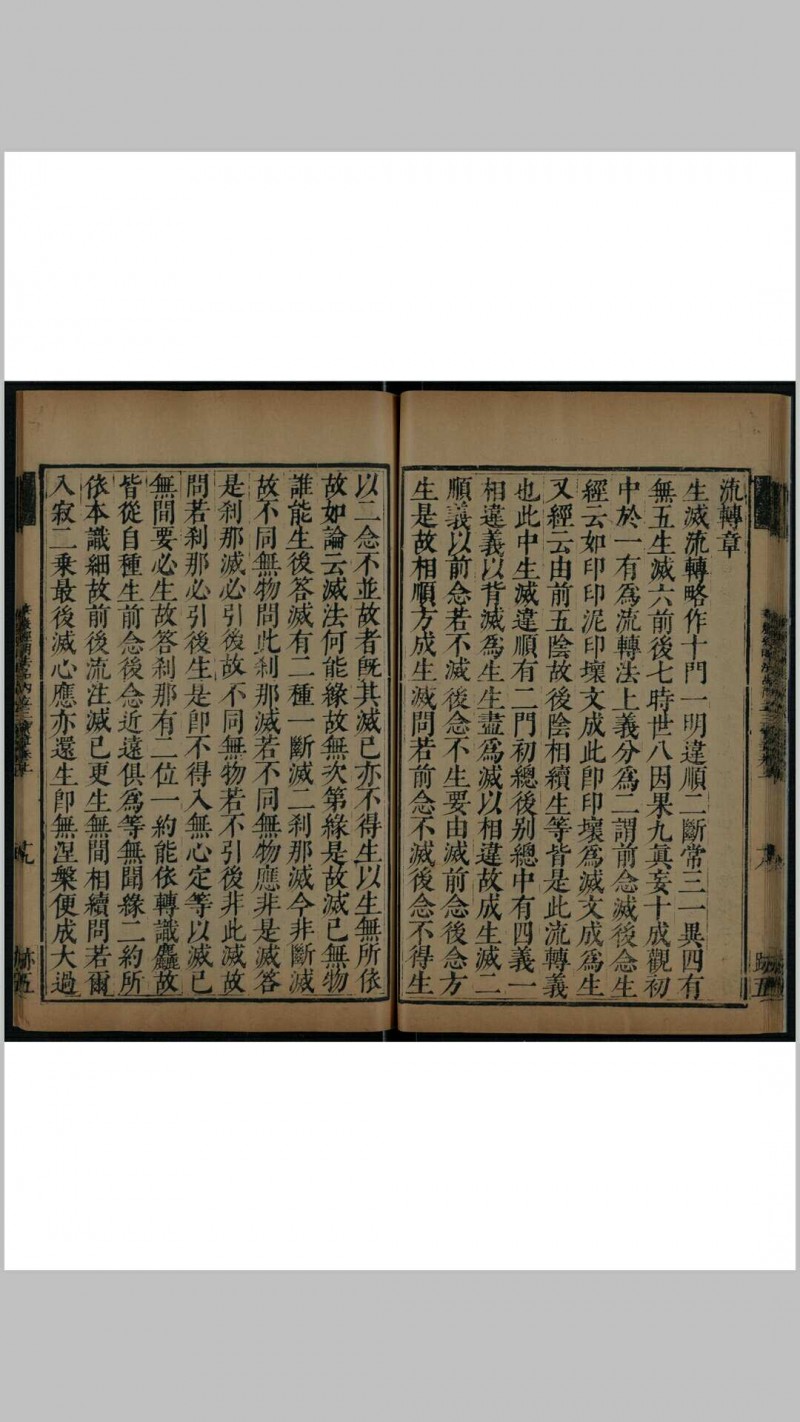 流轉章
生滅流轉略作十門一明違順二斷常三一異四有
無五生滅六前後七時世八因果九眞妄十成觀初
中於一有爲流轉法上義分爲二謂前念滅後念生
經云如印印泥印壞文成此卽印壞爲滅文成爲生
又經云由前五陰故後陰相續生等皆是此流轉義
也此中生滅違順有二門初總後別總中有四義一
相違義以背滅爲生生盡爲滅以相違故成生滅二
順義以前念若不滅後念不生要由滅前念後念方
生是故相順方成生滅問若前念不滅後念不得生
以二念不並故者旣其滅已亦不得生以生無所依
故如論云滅法何能緣故無次第緣是故滅已無物
誰能生後答滅有二種一斷滅二刹那滅今非斷滅
故不同無物問此刹那滅若不同無物應非是滅答
是刹那滅必引後故不同無物若不引後非此滅故
問若刹那必引後生是卽不得入無心定等以滅已
無間要必生故答刹那有二位一約能依轉識麤故
皆從自種生前念後念近遠俱爲等無間緣二約所
依本識細故前後流注滅已更生無間相續問若爾
入寂二乘最後滅心應亦還生卽無涅槃便成大過